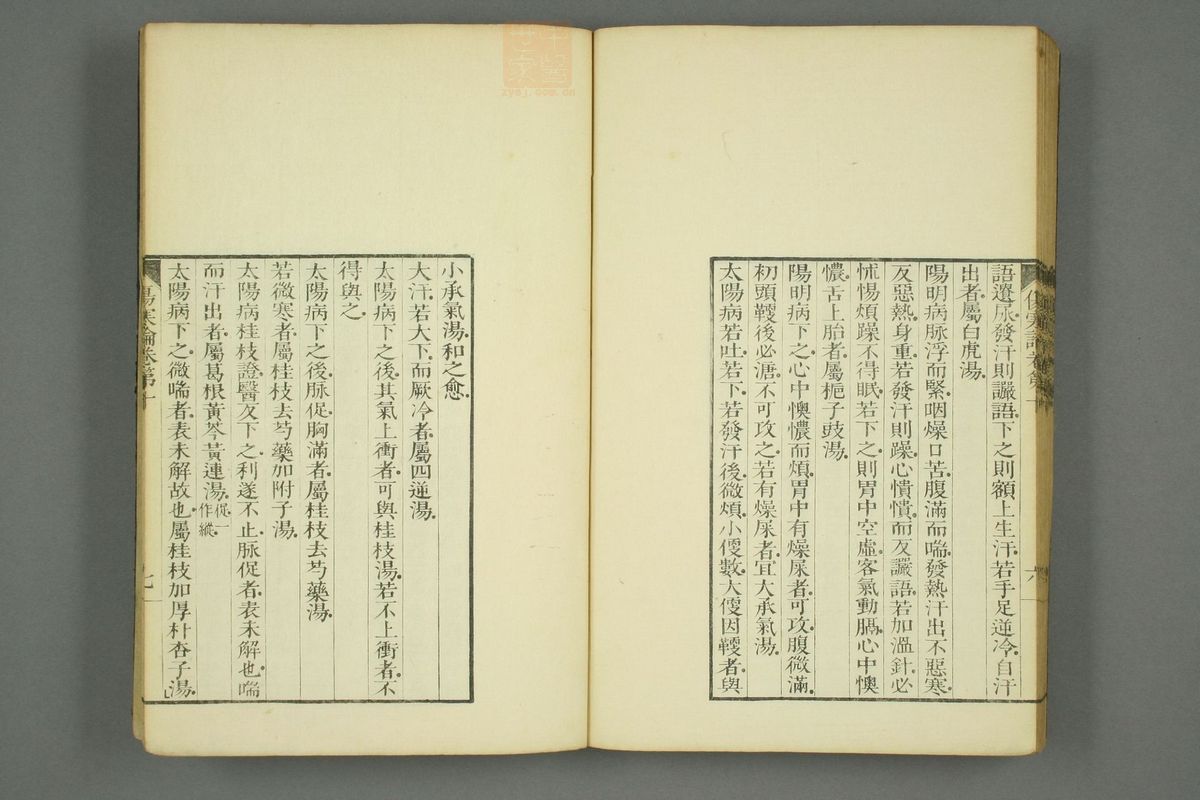 語遺尿發汗則讝語下之則額上生汗若手足逆冷自汗
出者屬白虎湯
陽明病脉浮而緊咽燥口苦腹滿而喘發熱汗出不惡寒
反惡熱身重若發汗則躁心憒憒而反讝語若加溫針必
怵惕煩躁不得眠若下之則胃中空虛客氣動膈心中懊
憹舌上胎者屬梔子豉湯
陽明病下之心中懊憹而煩胃中有燥屎者可攻腹微滿
初頭鞕後必溏不可攻之若有燥屎者宜大承氣湯
太陽病若吐若下若發汗後微煩小便數大便因鞕者與
六
小承氣湯和之愈
大汗若大下而厥冷者屬四逆湯
太陽病下之後其氣上衝者可與桂枝湯若不上衝者不
得與之
太陽病下之後脉促胸滿者屬桂枝去芍藥湯
若微寒者屬桂枝去芍藥加附子湯
太陽病桂枝證醫反下之利遂不止脉促者表未解也喘
而汗出者屬葛根黃芩黃連湯促一作縱
太陽病下之微喘者表未解故也屬桂枝加厚朴杏子湯
傷寒論卷第十
七
zysj.com.cn